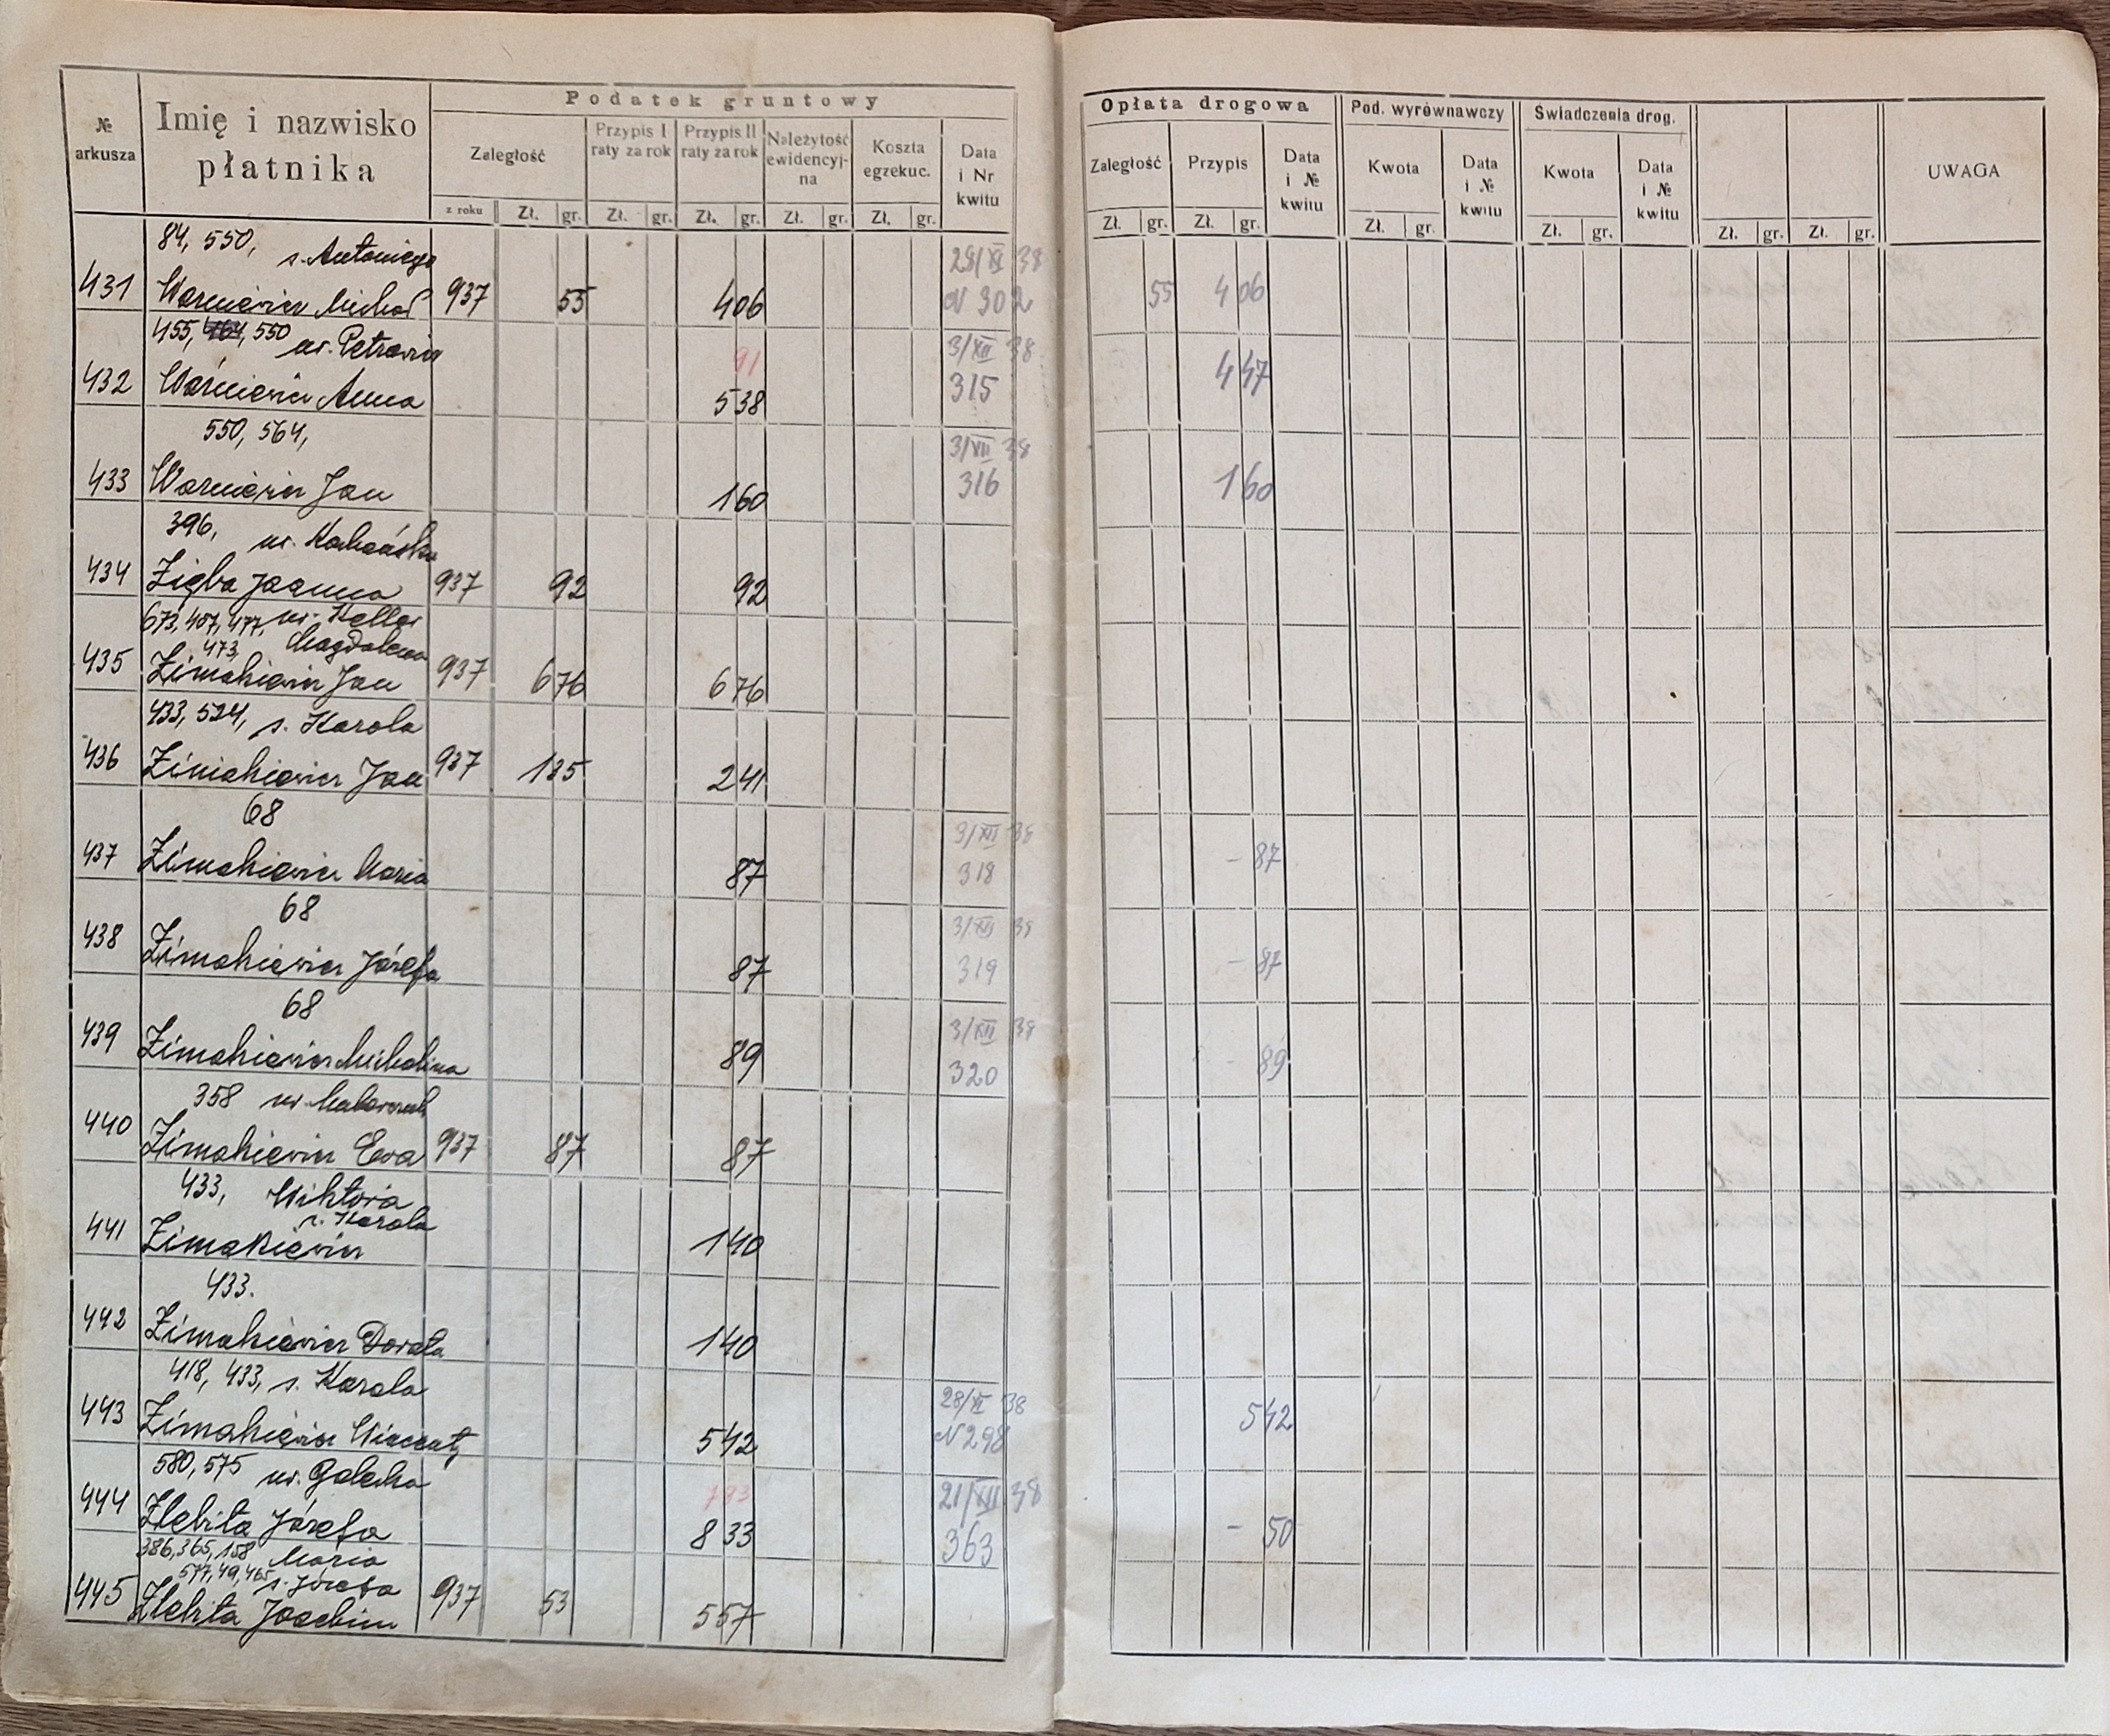 Podatek gruntowy
№ arkusza
Imię i nazwisko płatnika
Zaległość
Przypis I raty za rok
Przypis II raty za rok
Należytość ewidencyj-na
Koszta egzekuc.
Data i Nr kwitu
z roku Zł. gr. Zł. gr. Zł. gr. Zł. gr. Zł. gr.
Opłata drogowa
Pod. wyrównawczy
Świadczenia drog.
Zaległość
Przypis
Data i № kwitu
Kwota
Data i № kwitu
Kwota
Data i № kwitu
UWAGA
Zł. gr. Zł. gr. Zł. gr. Zł. gr. Zł. gr. Zł. gr.
84, 550, s. Antoniego 28/XI 38
431 Warniewicz Michał 937 55 406 N 302 55 406
455, 550 ur. 91 3/XII 38
432 Warniewicz Anna 538 315 447
550, 564, 3/XII 38
433 Warniewicz Jan 160 316 160
396, ur.
434 Zięba Joanna 937 92 92
673, 407, 477, ur. Keller
473, Magdalena
435 Zimakiewicz Jan 937 676 676
433, 524, s. Karola
436 Zimakiewicz Jan 937 185 241
68 3/XII 38
437 Zimakiewicz Maria 87 318 - 87
68 3/XII 38
438 Zimakiewicz Józefa 87 319 - 87
68 3/XII 38
439 Zimakiewicz Michalina 89 320 - 89
358 ur.
440 Zimakiewicz Ewa 937 87 87
433, Wiktoria
s. Karola
441 Zimakiewicz 140
433.
442 Zimakiewicz Dorota 140
418, 433, s. Karola 28/XI 38
443 Zimakiewicz Wincenty 542 N 298 542
580, 575 ur. 783 21/XII 38
444 Zlebita Józefa 833 363 - 50
386, 365, 158 Maria
577, 49, 465 s. Józefa
445 Zlebita Joachim 937 53 557